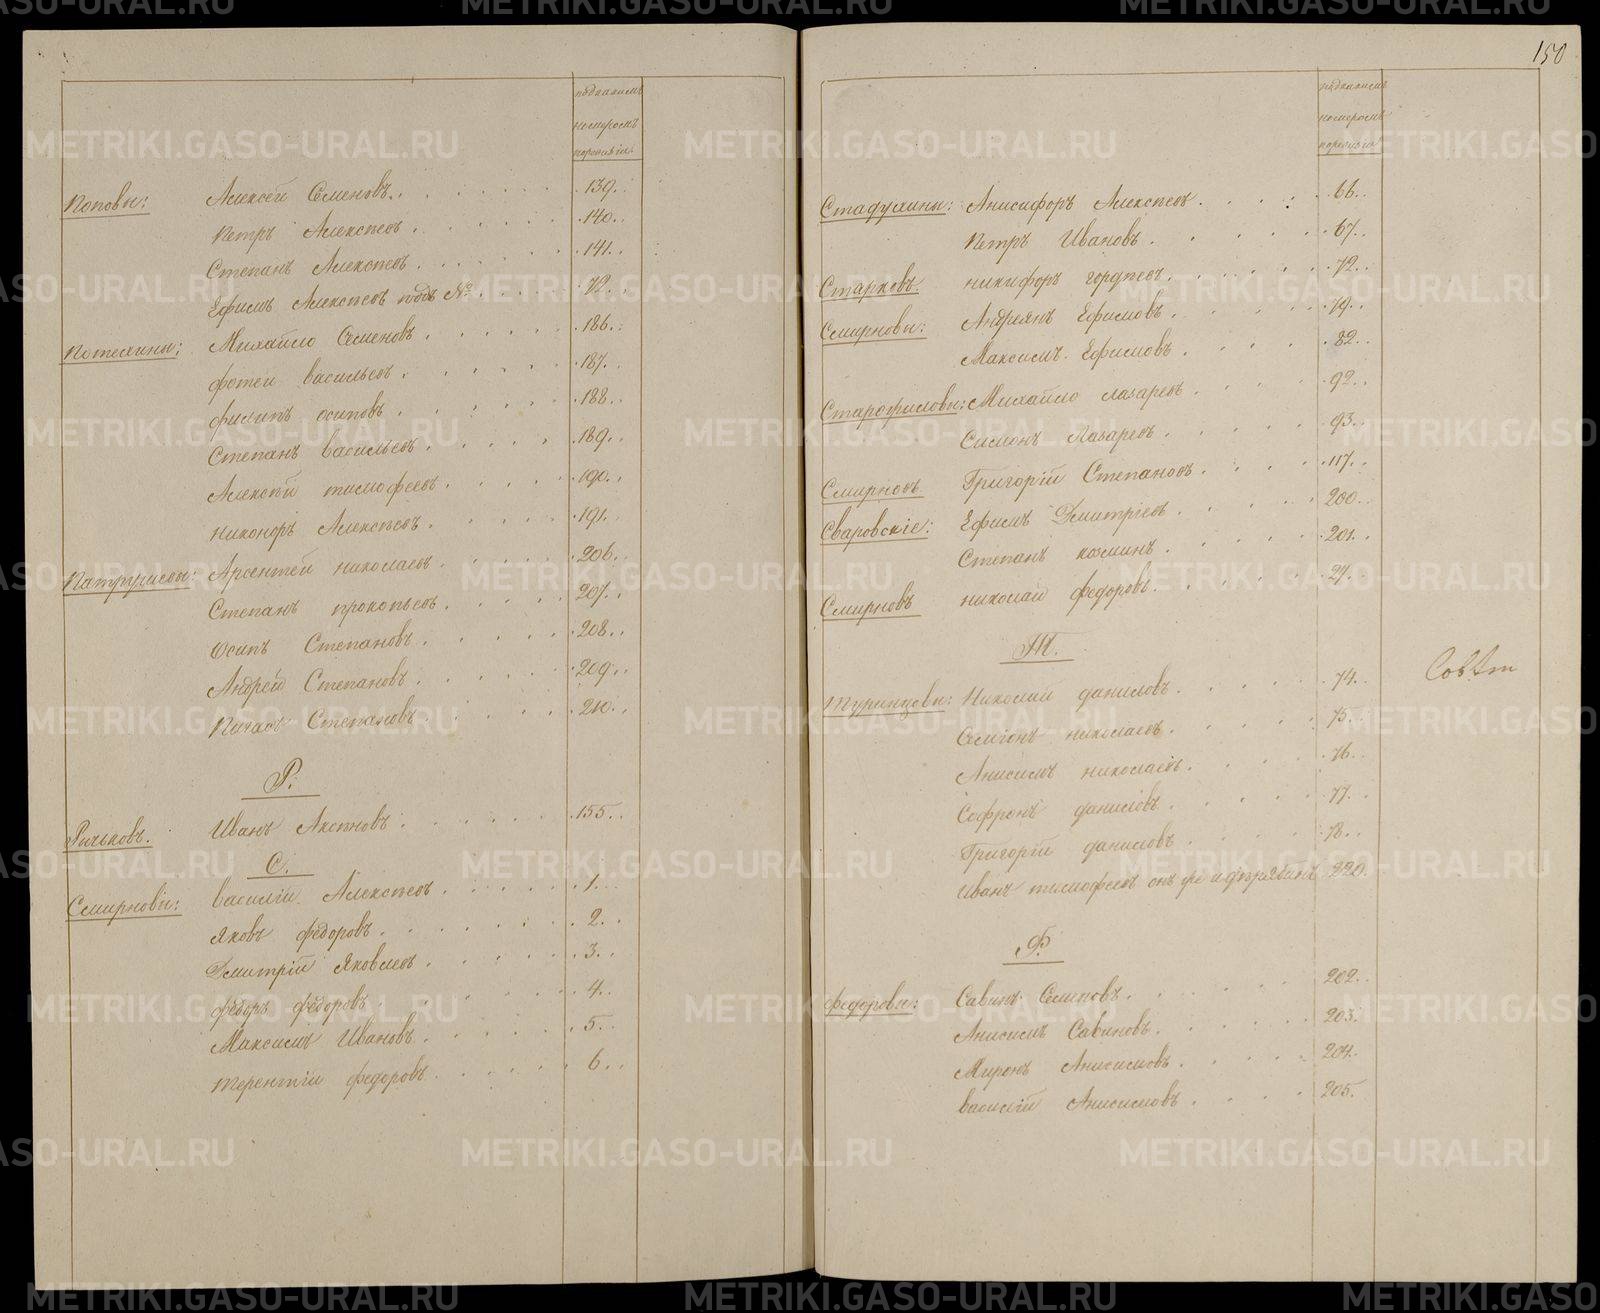 подкакимъ
номеромъ
Поповы: Алексѣй Семеновъ. 139.
Петръ Алексѣевъ. 140.
Степанъ Алексѣевъ. 141.
Ефимъ Алексѣевъ подъ № 72.
Потехины: Михайло Семеновъ. 186.
Фотей васильевъ. 187.
Филипъ осиповъ. 188.
Степанъ васильевъ. 189.
Алексѣй тимофеевъ. 190.
никоноръ Алексѣевъ. 191.
Арсентей николаевъ. 206.
Степанъ прокопьевъ. 207.
Осипъ Степановъ. 208.
Андрей Степановъ. 209.
Степановъ. 210.
Р.
Рычьковъ. Иванъ 155.
С.
Смирновы: василій Алексѣевъ. 1.
Яковъ федоровъ. 2.
Дмитрій Яковлевъ. 3.
федоръ федоровъ. 4.
Максимъ Ивановъ. 5.
терентій федоровъ. 6.
150
подкакимъ
номеромъ
Стадухины: Анисифоръ Алексѣевъ. 66.
Петръ Ивановъ. 67.
Старковъ. никифоръ гордѣевъ. 72.
Смирновы: Андреянъ Ефимовъ. 79.
Максимъ Ефимовъ. 82.
Михайло лазаревъ. 92.
Симонъ Лазаревъ. 93.
Смирновъ Григорій Степановъ. 117.
Сваровскіе: Ефимъ Дмитріевъ. 200.
Степанъ козминъ. 201.
Смирновъ николай федоровъ. 27.
Т.
Туринцовы: Николай даниловъ. 74.
Семіонъ николаевъ. 75.
Анисимъ николаевъ. 76.
Софронъ даниловъ. 77.
Григорій даниловъ. 78.
Иванъ тимофеевъ онъ же и 220.
Ф.
федоровы: Савинъ Семновъ. 202.
Анисимъ Савиновъ. 203.
Миронъ Анисимовъ. 204.
василій Анисимовъ. 205.
METRIKI.GASO-URAL.RU